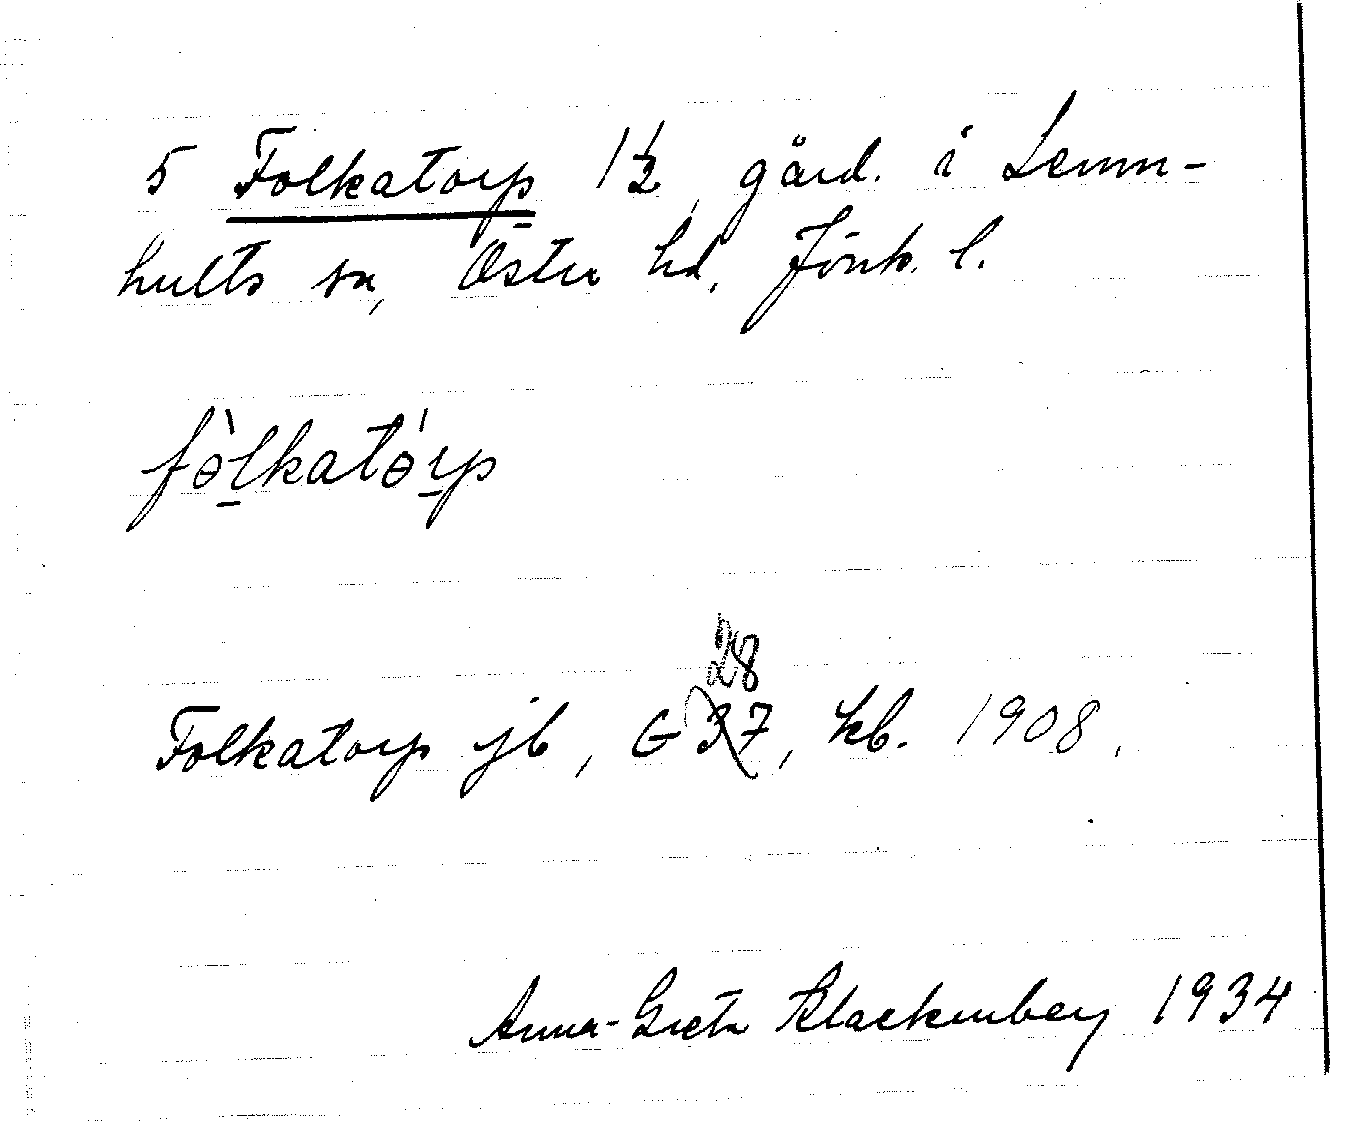 5 Folkatorp 1½, gård. i Lemn-
hults sn, Östra hd, Jönk. l.
fòl̲katór̲p
28
Folkatorp jb, G 37, kb. 1908.
Anna-Greta Klackenberg 1934